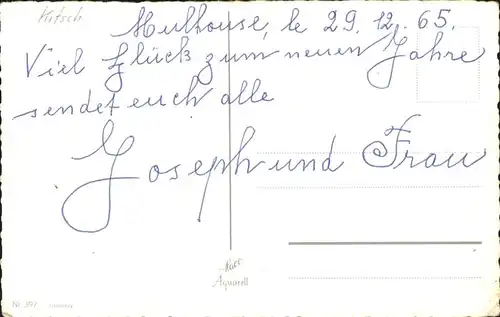 Kitsch
Mulhouse, le 29. 12. 65.
Viel Glück zum neuen Jahre
sendet euch alle
Joseph und Frau
Aquarell
Nr. 397